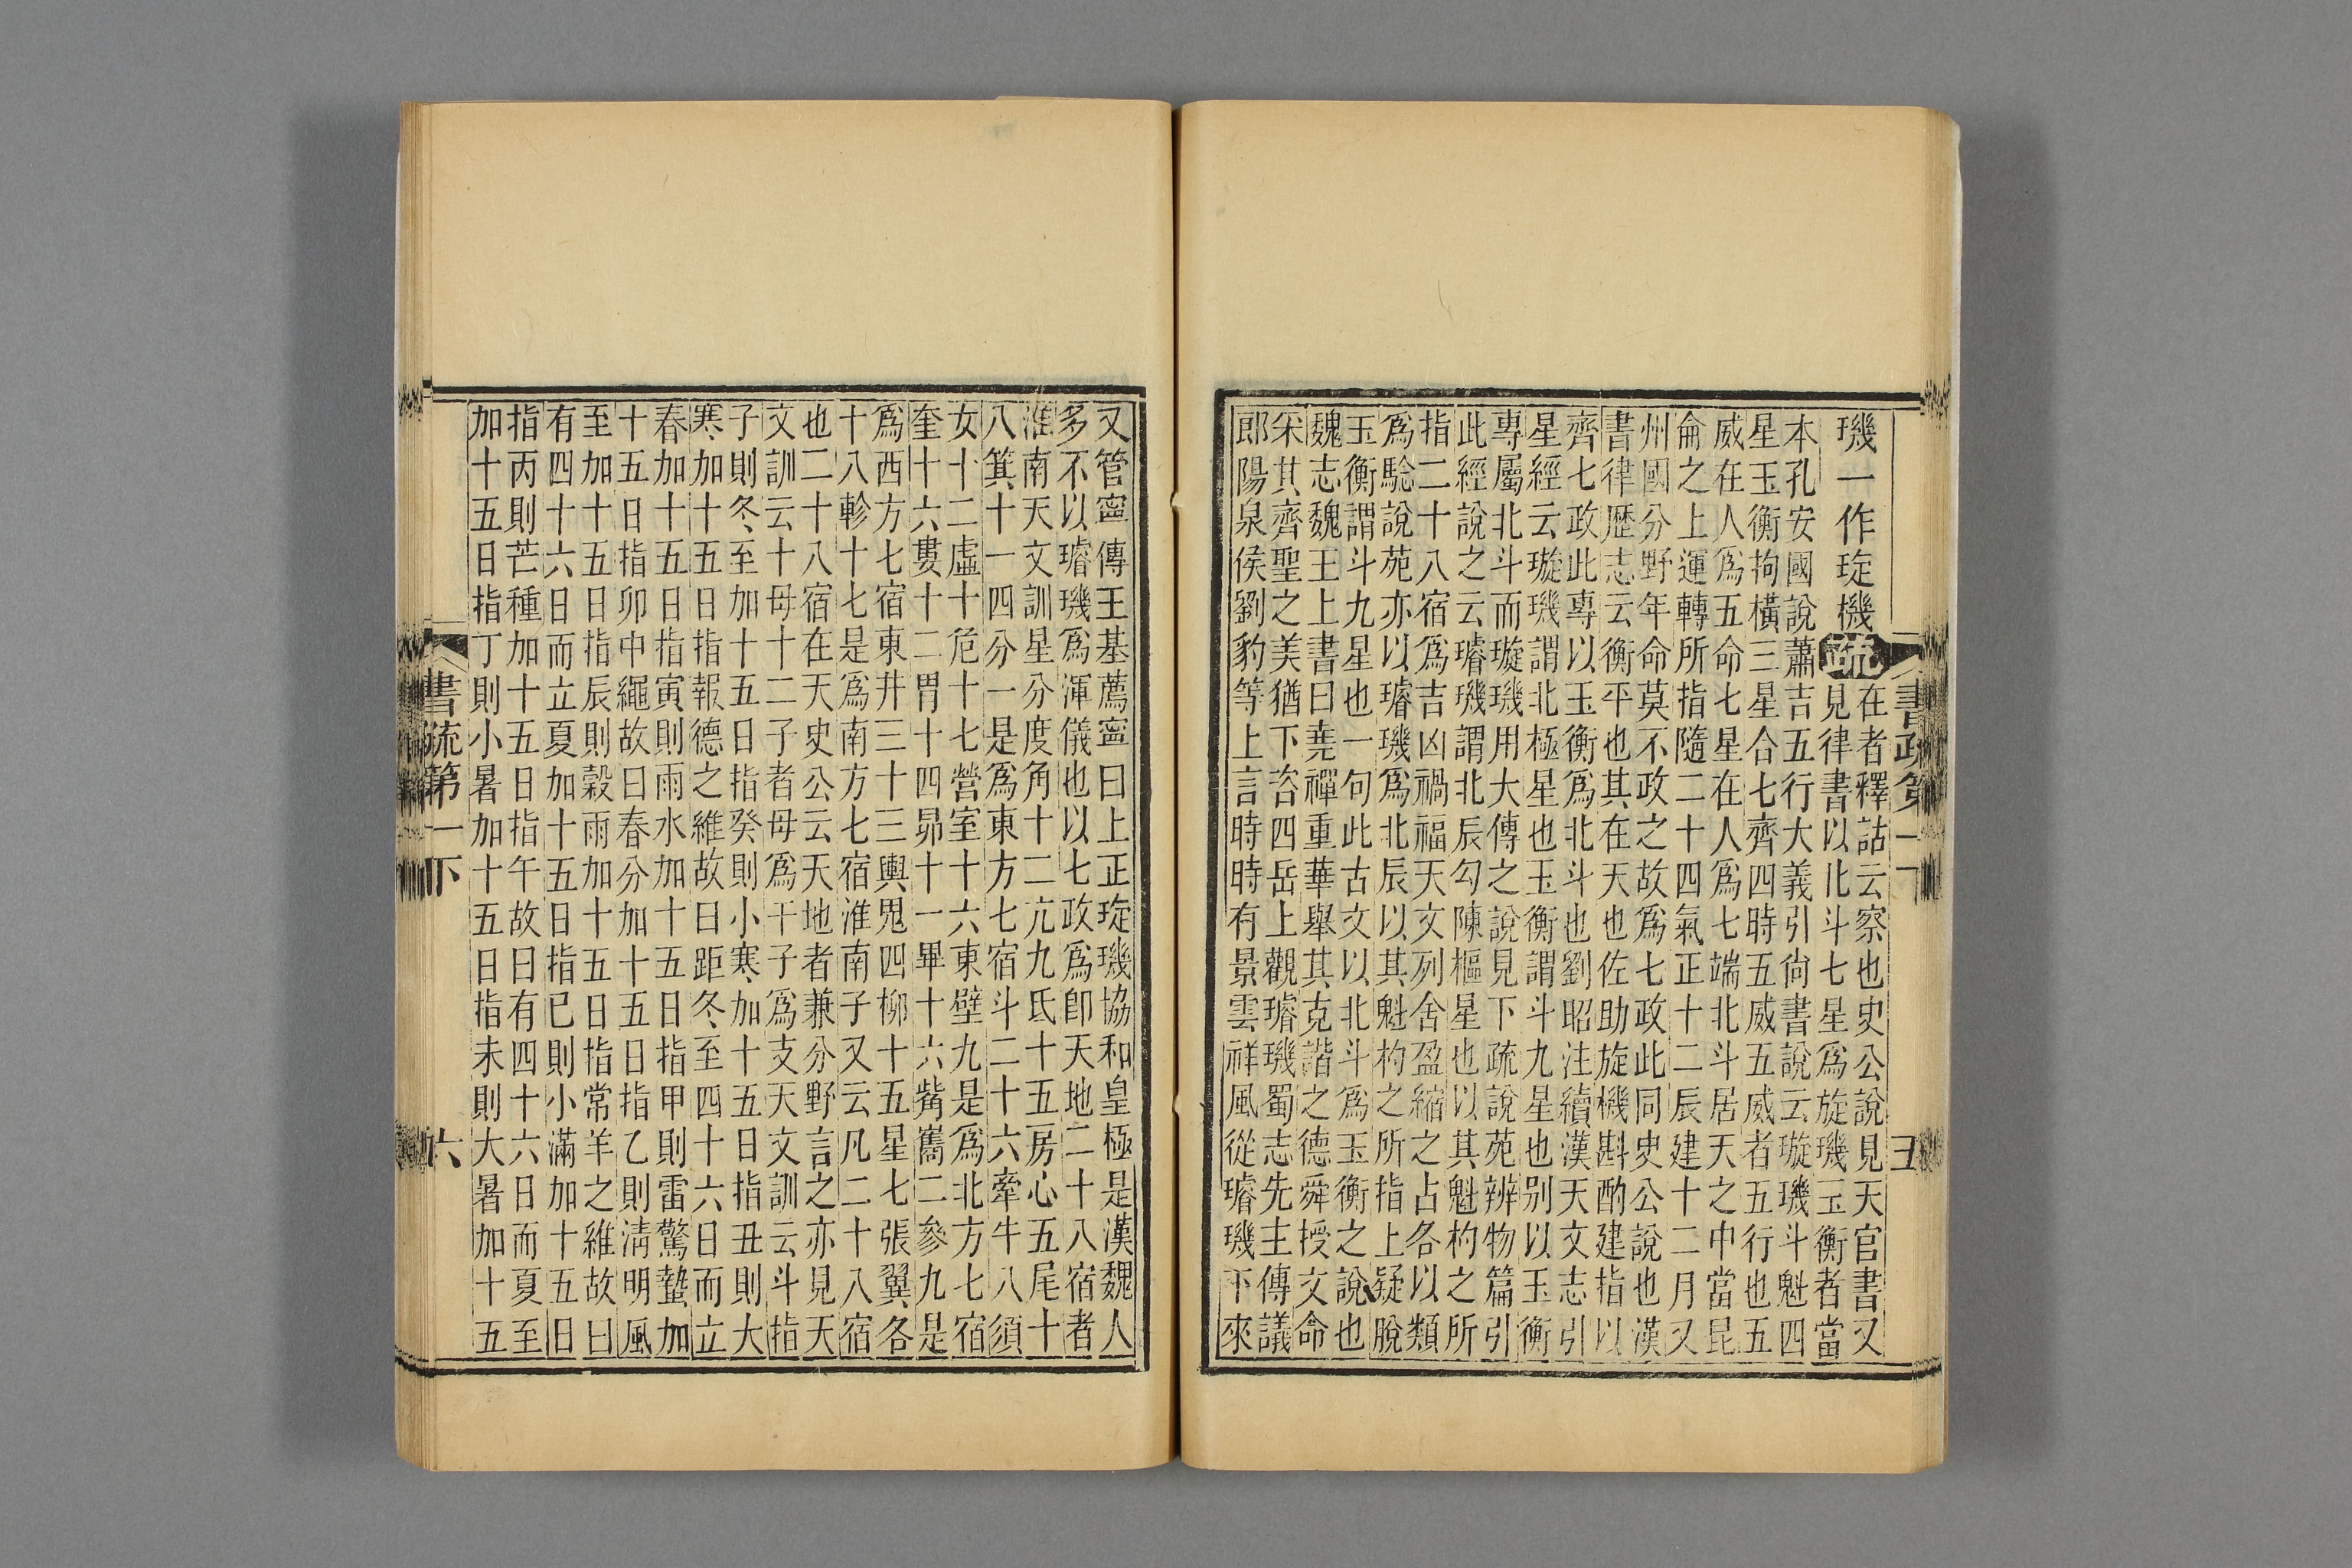 書疏第一下
五
璣一作琁機疏
在者釋詁云察也史公說見天官書又
見律書以北斗七星爲旋璣玉衡者當
本孔安國說蕭吉五行大義引尙書說云璇璣斗魁四
星玉衡拘橫三星合七齊四時五威五威者五行也五
威在人爲五命七星在人爲七端北斗居天之中當昆
侖之上運轉所指隨二十四氣正十二辰建十二月又
州國分野年命莫不政之故爲七政此同史公說也漢
書律歷志云衡平也其在天也佐助旋機斟酌建指以
齊七政此專以玉衡爲北斗也劉昭注續漢天文志引
星經云璇璣謂北極星也玉衡謂斗九星也别以玉衡
專屬北斗而璇璣用大傳之說見下疏說苑辨物篇引
此經說之云璿璣謂北辰勾陳樞星也以其魁杓之所
指二十八宿爲吉凶禍福天文列舍盈縮之占各以類
爲騐說苑亦以璿璣爲北辰以其魁杓之所指上疑脫
玉衡謂斗九星也一句此古文以北斗爲玉衡之說也
魏志魏王上書曰堯禪重華舉其克諧之德舜授文命
采其齊聖之美猶下咨四岳上觀璿璣蜀志先主傳議
郎陽泉侯劉豹等上言時時有景雲祥風從璿璣下來
又管寍傳王基薦寍曰上正琁璣協和皇極是漢魏人
多不以璿璣爲渾儀也以七政爲卽天地二十八宿者
淮南天文訓星分度角十二亢九氐十五房心五尾十
八箕十一四分一是爲東方七宿斗二十六牽牛八須
女十二虛十危十七營室十六東壁九是爲北方七宿
奎十六婁十二胃十四昴十一畢十六觜巂二參九是
爲西方七宿東井三十三輿鬼四柳十五星七張翼各
十八軫十七是爲南方七宿淮南子又云凡二十八宿
也二十八宿在天史公云天地者兼分野言之亦見天
文訓云十母十二子者母爲干子爲支天文訓云斗指
子則冬至加十五日指癸則小寒加十五日指丑則大
寒加十五日指報德之維故曰距冬至四十六日而立
春加十五日指寅則雨水加十五日指甲則雷驚蟄加
十五日指卯中繩故曰春分加十五日指乙則淸明風
至加十五日指辰則穀雨加十五日指常羊之維故曰
有四十六日而立夏加十五日指巳則小滿加十五日
指丙則芒種加十五日指午故曰有四十六日而夏至
加十五日指丁則小暑加十五日指未則大暑加十五
書疏第一下
六